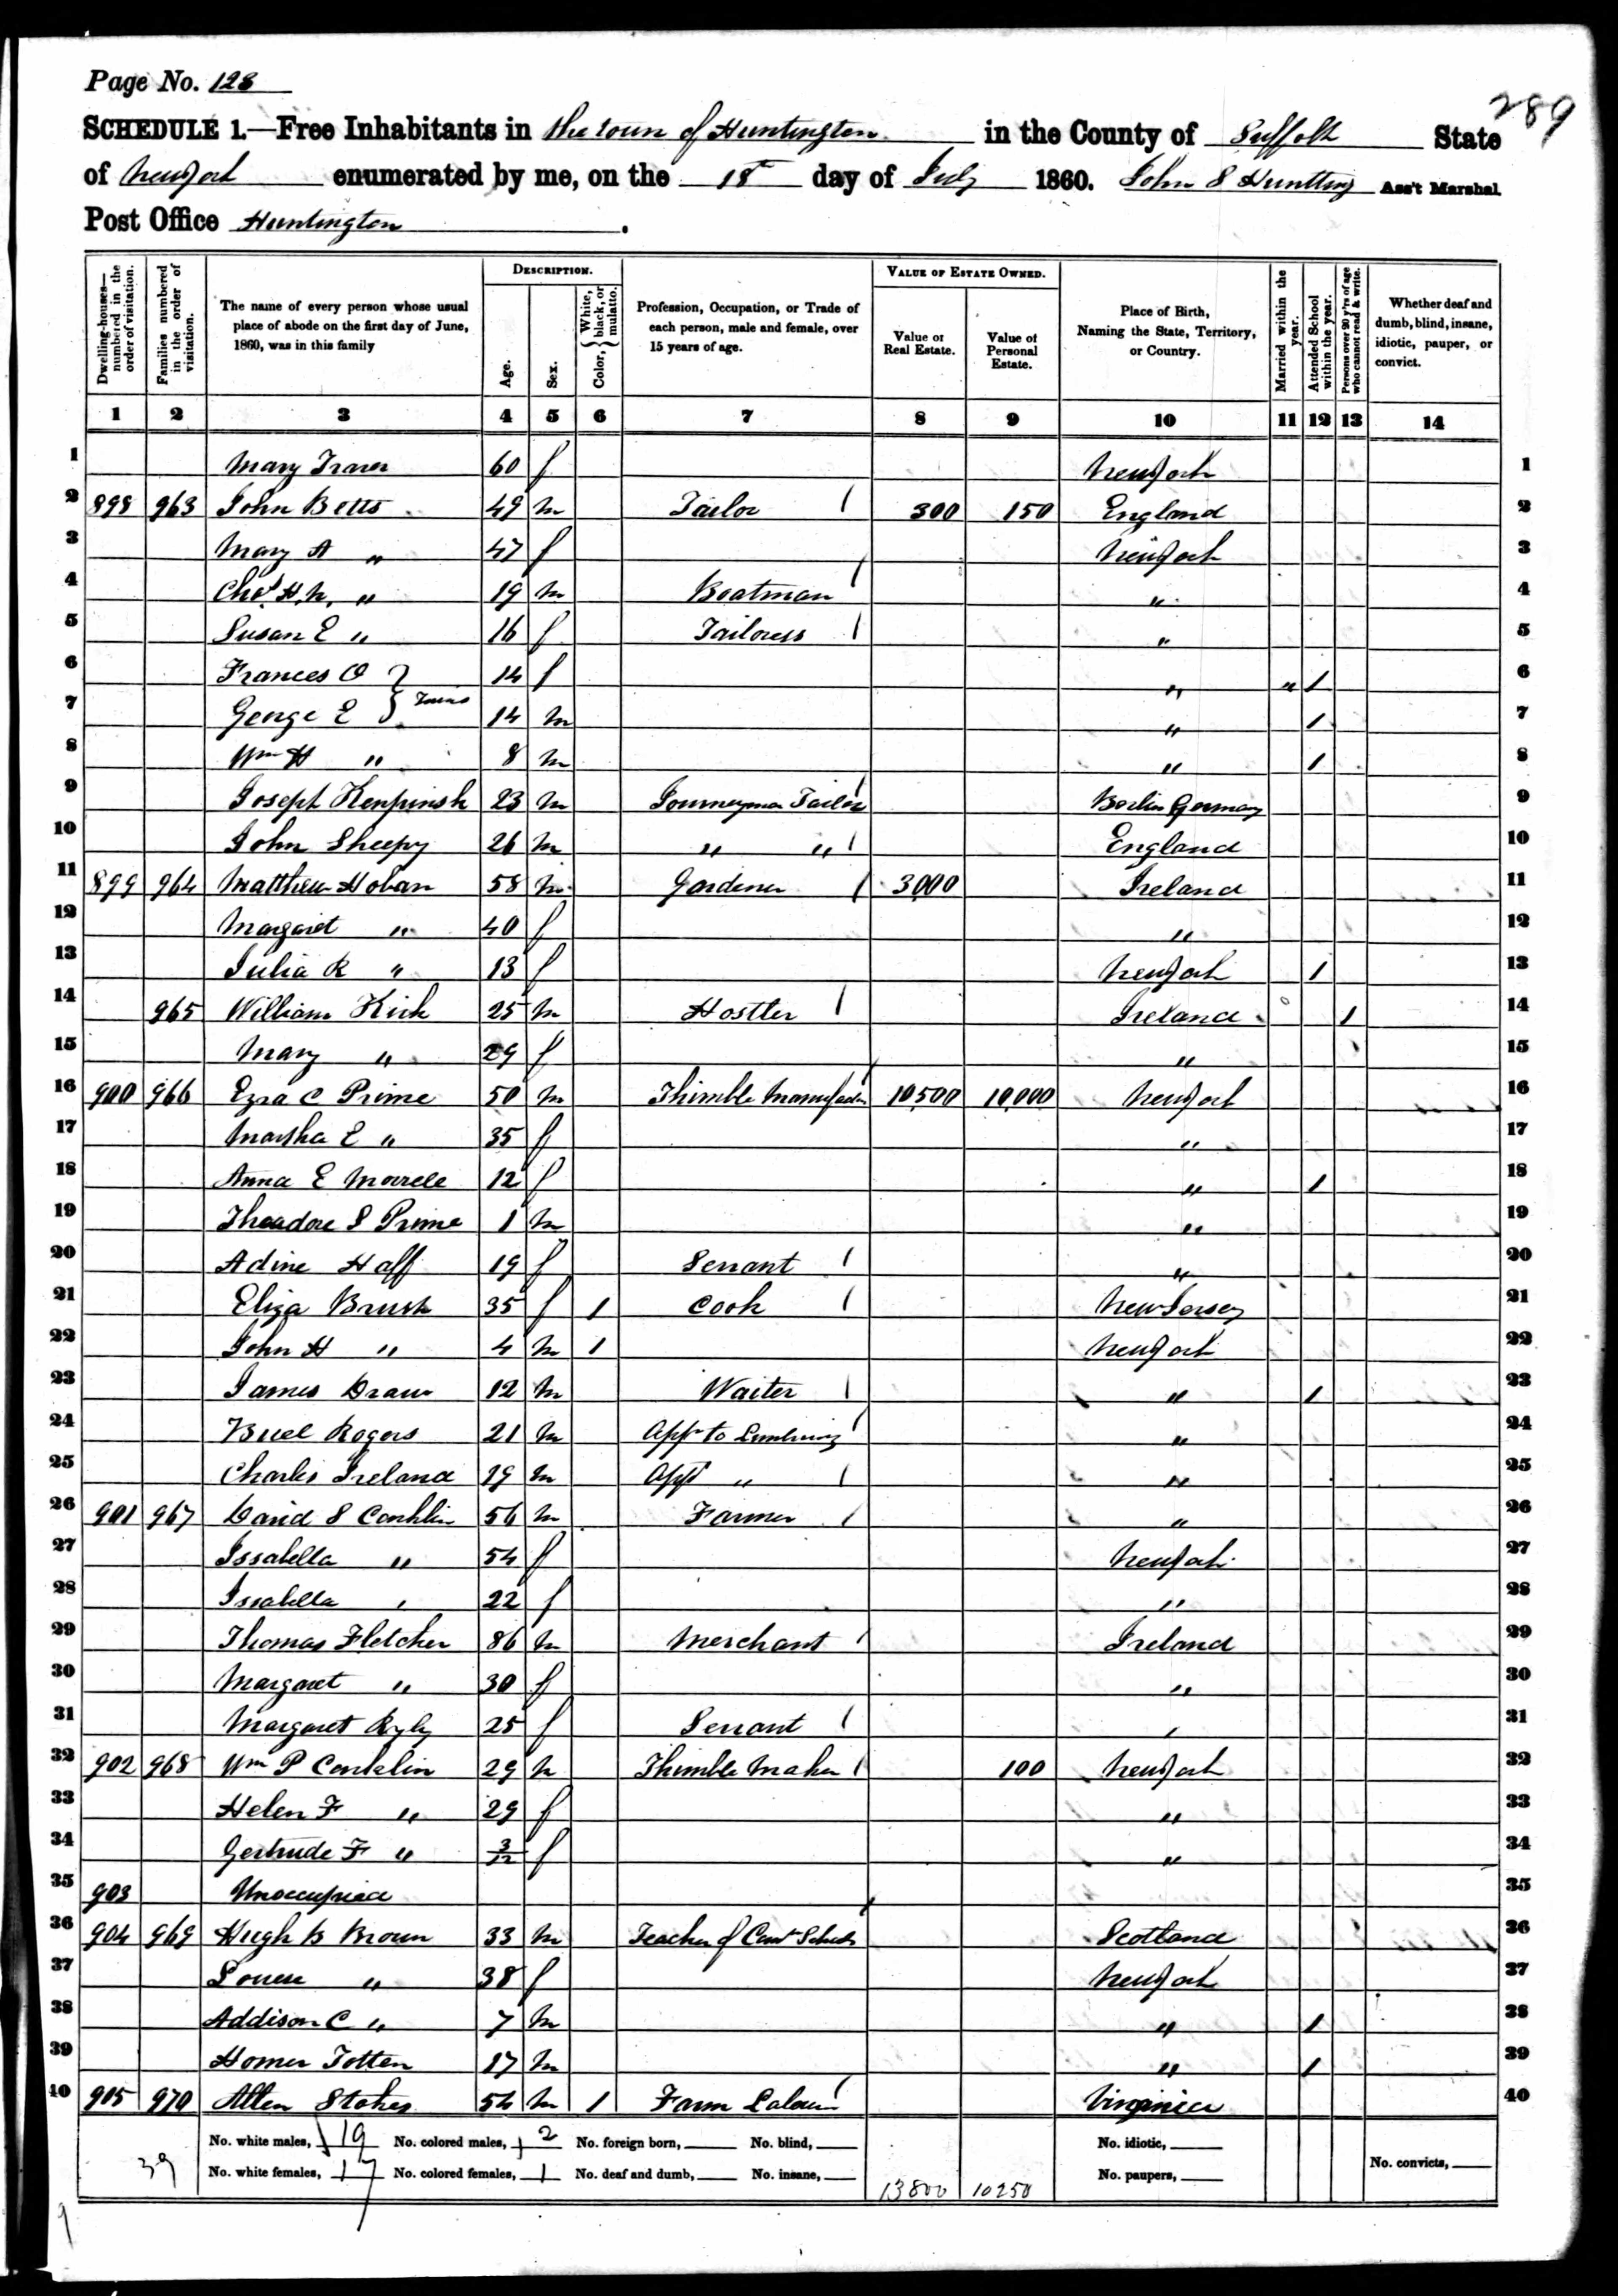 Page No. 128
289
SCHEDULE 1.—Free Inhabitants in the town of Huntington in the County of Suffolk State
of New York enumerated by me, on the 18 day of July 1860. John S Huntting Ass't Marshal
Post Office Huntington.
Dwelling-houses—numbered in the order of visitation.
Families numbered in the order of visitation.
The name of every person whose usual place of abode on the first day of June, 1860, was in this family
DESCRIPTION.
Age.
Sex.
Color, {White, black, or mulatto.
Profession, Occupation, or Trade of each person, male and female, over 15 years of age.
VALUE OF ESTATE OWNED.
Value of Real Estate.
Value of Personal Estate.
Place of Birth, Naming the State, Territory, or Country.
Married within the year.
Attended School within the year.
Persons over 20 y'rs of age who cannot read & write.
Whether deaf and dumb, blind, insane, idiotic, pauper, or convict.
1 2 3 4 5 6 7 8 9 10 11 12 13 14
1 Mary 60 f New York 1
2 898 963 John Betts 49 m Tailor / 300 150 England 2
3 Mary A " 47 f New York 3
4 Chas H. N. " 19 m Boatman / " 4
5 Susan E " 16 f Tailoress / " 5
6 Frances O } 14 f " " 1 6
7 George E } Twins 14 m " 1 7
8 Wm H " 8 m " 1 8
9 Joseph 23 m Journeyman Tailor / Berlin Germany 9
10 John Sheepy 26 m " " / England 10
11 899 964 Matthew Hoban 58 m Gardener / 3000 Ireland 11
12 Margaret " 40 f " 12
13 Julia R " 13 f New York 1 13
14 965 William Kirk 25 m Hostler / Ireland 1 14
15 Mary " 29 f " 15
16 900 966 Ezra C Prime 50 m Thimble / 10,500 10,000 New York 16
17 Martha E " 35 f " 17
18 Anna E 12 f " 1 18
19 Theadore S Prime 1 m " 19
20 Adine Haff 19 f Servant / " 20
21 Eliza Brush 35 f 1 Cook / New Jersey 21
22 John H " 4 m 1 New York 22
23 James 12 m Waiter / " 1 23
24 Buel Rogers 21 m App to / " 24
25 Charles Ireland 19 m App " / " 25
26 901 967 David S Conklin 56 m Farmer / " 26
27 Issabella " 54 f New York 27
28 Issabella " 22 f " 28
29 Thomas Fletcher 86 m Merchant / Ireland 29
30 Margaret " 30 f " 30
31 Margaret Ryly 25 f Servant / " 31
32 902 968 Wm P Conklin 29 m Thimble Maker / 100 New York 32
33 Helen F " 29 f " 33
34 Gertrude F " 3/12 f " 34
35 903 Unoccupied 35
36 904 969 Hugh B Brown 33 m Teacher of Com Schools / Scotland 36
37 " 38 f New York 37
38 Addison C " 7 m " 1 38
39 Homer Totten 17 m " 1 39
40 905 970 Allen Stokes 54 m 1 Farm / Virginia 40
39
No. white males, 19 No. colored males, 2 No. foreign born, No. blind, No. idiotic,
No. white females, 17 No. colored females, 1 No. deaf and dumb, No. insane, 13800 10250 No. paupers, No. convicts,